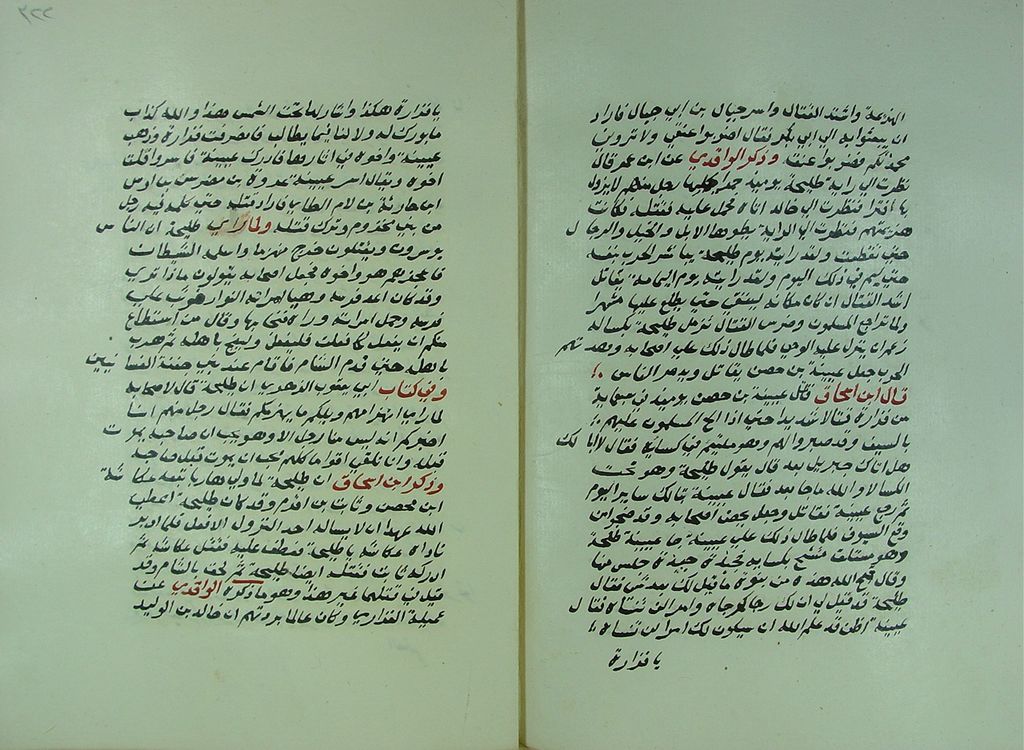 الهزيمة واشتد القتال واسر حبال بن ابي حبال فاراد
ان يبعثوا به الى ابي بكر فقال اضربوا عنقي ولا تروني
محمدكم فضربوا عنقه وذكر الواقدي عن ابن عمر قال
نظرت الى راية طليحة يومئذ حمرا يحملها رجل منهم لا يزول
بها فترا فنظرت الى خالد اتاه فحمل عليه فقتله فكانت
هزيمتهم فنظرت الى الراية تطوها الابل والخيل والرجال
حتى تقطعت ولقد رايته يوم طليحة يباشر الحرب بنفسه
حتى ليم في ذلك اليوم ولقد رايته يوم اليمامة يقاتل
اشد القتال ان كان مكانه ليتقى حتى يطلع علينا منبهرا
ولما تراجع المسلمون وضرس القتال تزمل طليحة بكسا له
زعم ان ينزل عليه الوحي فلما طال ذلك على اصحابه وهدتهم
الحرب جعل عيينة بن حصن يقاتل ويذمر الناس
قال ابن اسحاق قاتل عيينة بن حصن يومئذ في سبعماية
من فزارة قتالا شديدا حتى اذا الح المسلمون عليهم
بالسيف وقد صبروا لهم وهو متلثم في كسايه فقال لا ابا لك
هل اتاك جبريل بعد قال يقول طليحة وهو تحت
الكسا لا والله ما جا بعد فقال عيينة تبا لك ساير اليوم
ثم رجع عيينة فقاتل وجعل يحض اصحابه وقد ضجوا من
وقع السيوف فلما طال ذلك على عيينة جا عيينة طليحة
وهو مستلق متشح بكسايه فجبذه جبذة جلس منها
وقال قبح الله هذه من نبوة ما قيل لك بعد شي فقال
طليحة قد قيل لي ان لك رجا كرجاه وامرا لن تنساه فقال
عيينة اظن قد علم الله ان سيكون لك امرا لن تنساه
يا فزارة
يا فزارة هكذا واشار لها تحت الشمس هذا والله كذاب
ما بورك له ولا لنا فيما يطالب فانصرفت فزارة وذهب
عيينة واخوه في اثارها فادرك عيينة فاسر وافلت
اخوه ويقال اسر عيينة عروة بن مضرس بن اوس
ابن حارثة بن لام الطايي فاراد قتله حتى كلمه فيه رجل
من بني مخزوم وترك قتله ولما راى طليحة ان الناس
يوسرون ويقتلون خرج منهزما واسلمه الشيطان
فاعجزهم هو واخوه فجعل اصحابه يقولون ماذا ترى
وقد كان اعد فرسه وهيا امراته النوار فوثب على
فرسه وحمل امراته وراه فنجا بها وقال من استطاع
منكم ان يفعل كما فعلت فليفعل ولينج باهله ثم هرب
باهله حتى قدم الشام فاقام عند بني جفنة الغسانيين
وفي كتاب ابي يعقوب الزهري ان طليحة قال لاصحابه
لما راى انهزامهم ويلكم ما يهزمكم فقال رجل منهم انا
اخبركم انه ليس منا رجل الا وهو يحب ان صاحبه يموت
قبله وانا نلقى اقواما كلهم يحب ان يموت قبل صاحبه
وذكر ابن اسحاق ان طليحة لما ولى هاربا تبعه عكاشة
ابن محصن وثابت بن اقرم وقد كان طليحة اعطى
الله عهدا ان لا يساله احد النزول الا فعل فلما ادبر
ناداه عكاشة يا طليحة فعطف عليه فقتل عكاشة ثم
ادركه ثابت فقتله ايضا طليحة ثم لحق بالشام وقد
قيل في قتلهما غير هذا وهو ما ذكره الواقدي عن
عميلة الفزاري وكان عالما بردتهم ان خالد بن الوليد